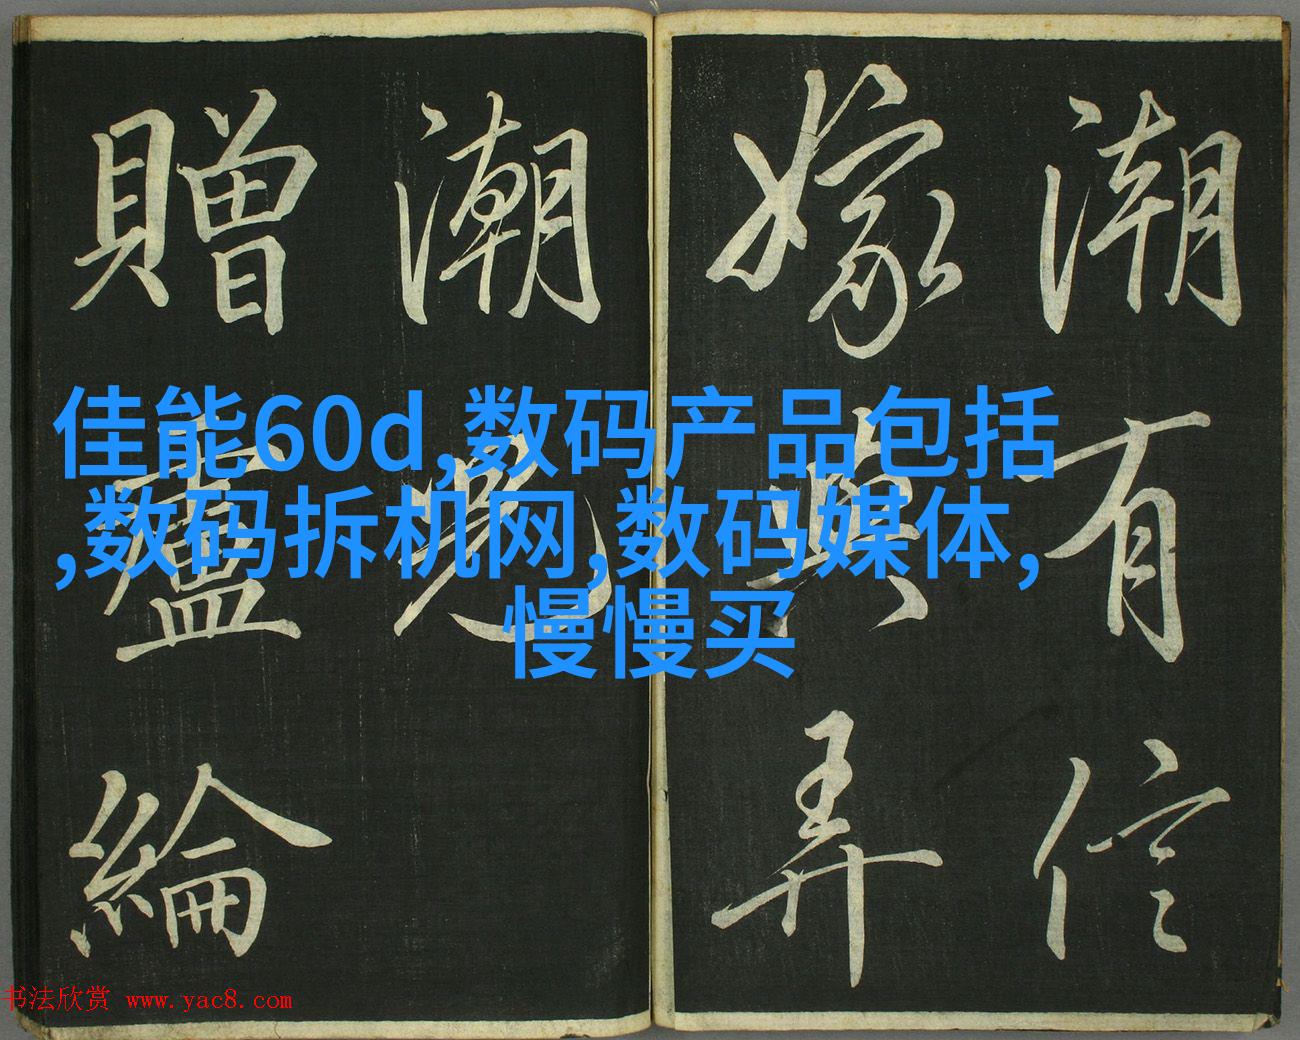 潮有信
嫁與弄
潮兒
贈盧綸
佳能60d,数码产品包括
,数码拆机网,数码媒体,
慢慢买
书法欣赏 www.yac8.com